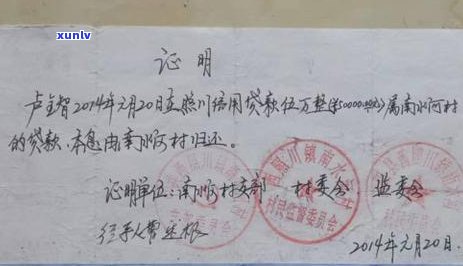 xunlv
证明
卢全智2014年元月20日在照川信用贷款伍万整(¥50000.00元)属南水河村
的贷款、本息由南水河村归还。
证明单位:南水河村支部 村委会 监委会
经手人曹
2014年元月20日.
照川镇南水
村民监督委员会